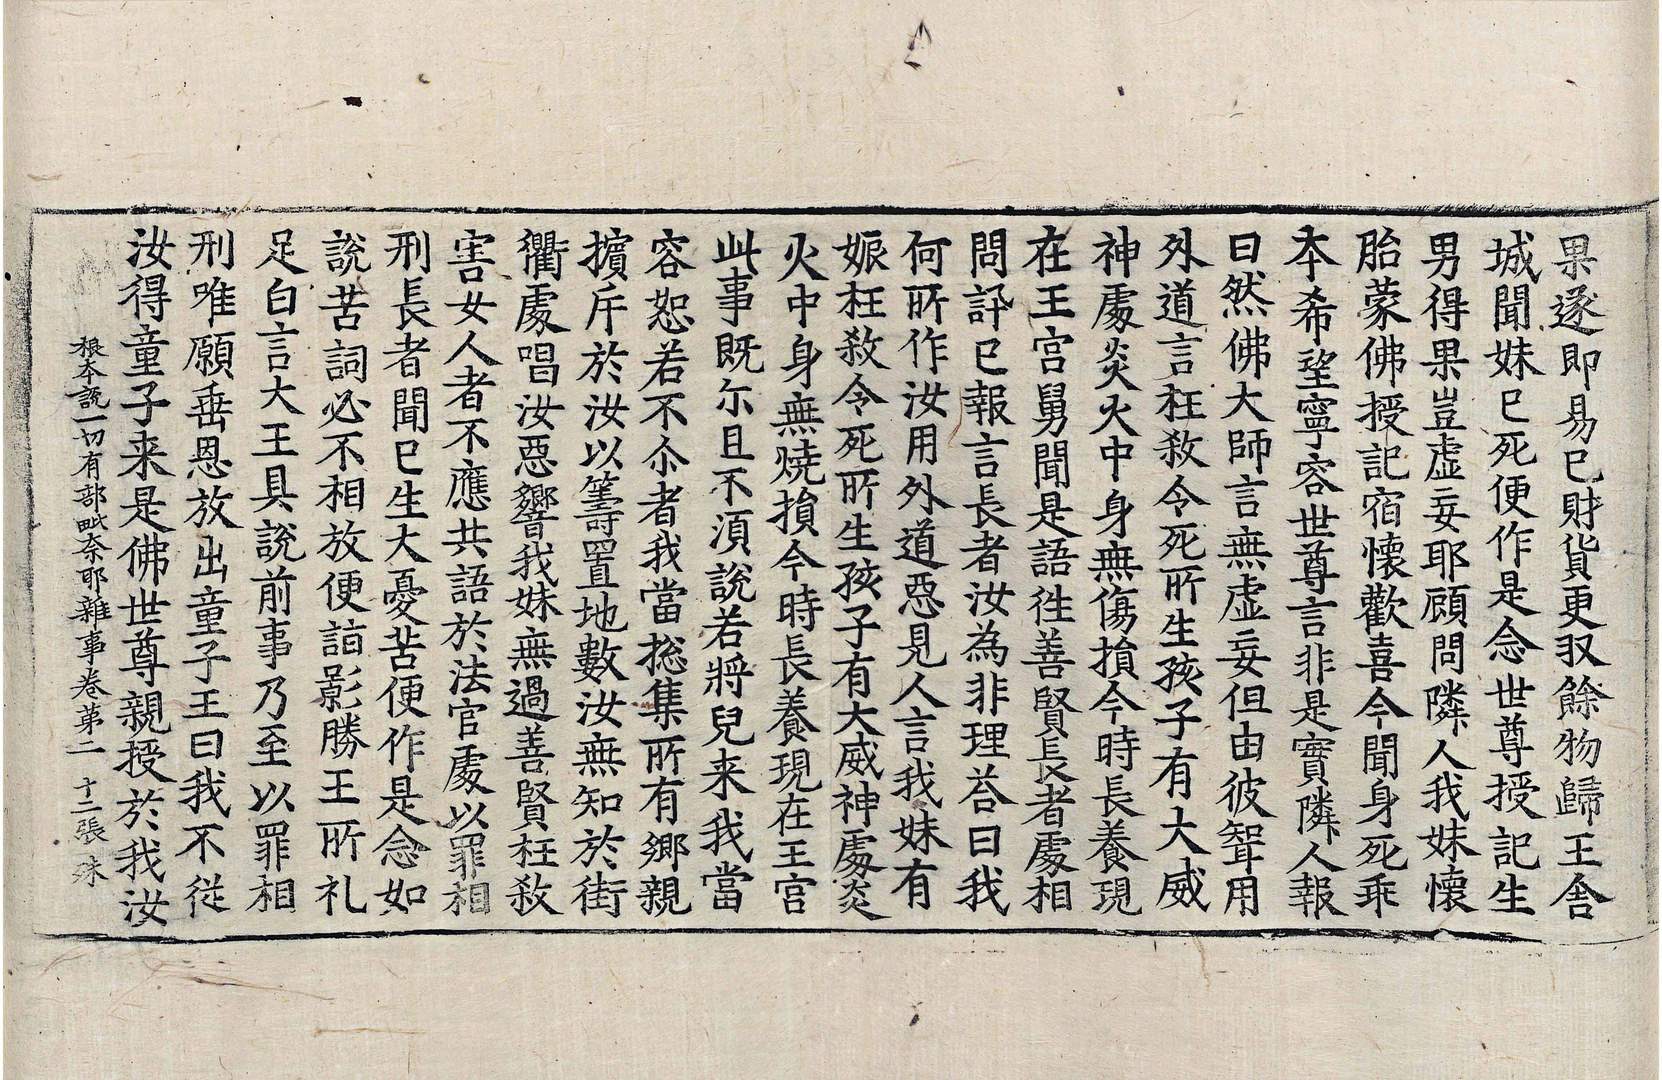 果遂即易已財貨更収餘物歸王舍
城聞妹已死便作是念世尊授記生
男得果豈虛妄耶顧問隣人我妹懷
胎蒙佛授記宿懷歡喜今聞身死乖
本希望寧容世尊言非是實隣人報
曰然佛大師言無虛妄但由彼聟用
外道言枉敎令死所生孩子有大威
神處炎火中身無傷損今時長養現
在王宮舅聞是語徃善賢長者處相
問訃已報言長者汝為非理荅曰我
何所作汝用外道惡見人言我妹有
娠枉敎令死所生孩子有大威神處炎
火中身無燒損今時長養現在王宮
此事旣尒且不湏說若將兒来我當
容恕若不尒者我當捴集所有鄉親
擯斥於汝以籌置地數汝無知於街
衢處唱汝惡響我妹無過善賢枉敎
害女人者不應共語於法官處以罪相
刑長者聞已生大憂苦便作是念如
說苦詞必不相放便詣影勝王所礼
足白言大王具說前事乃至以罪相
刑唯願垂恩放出童子王曰我不從
汝得童子来是佛世尊親授於我汝
根本說一切有部毗奈耶雜事卷第二 十二張 殊